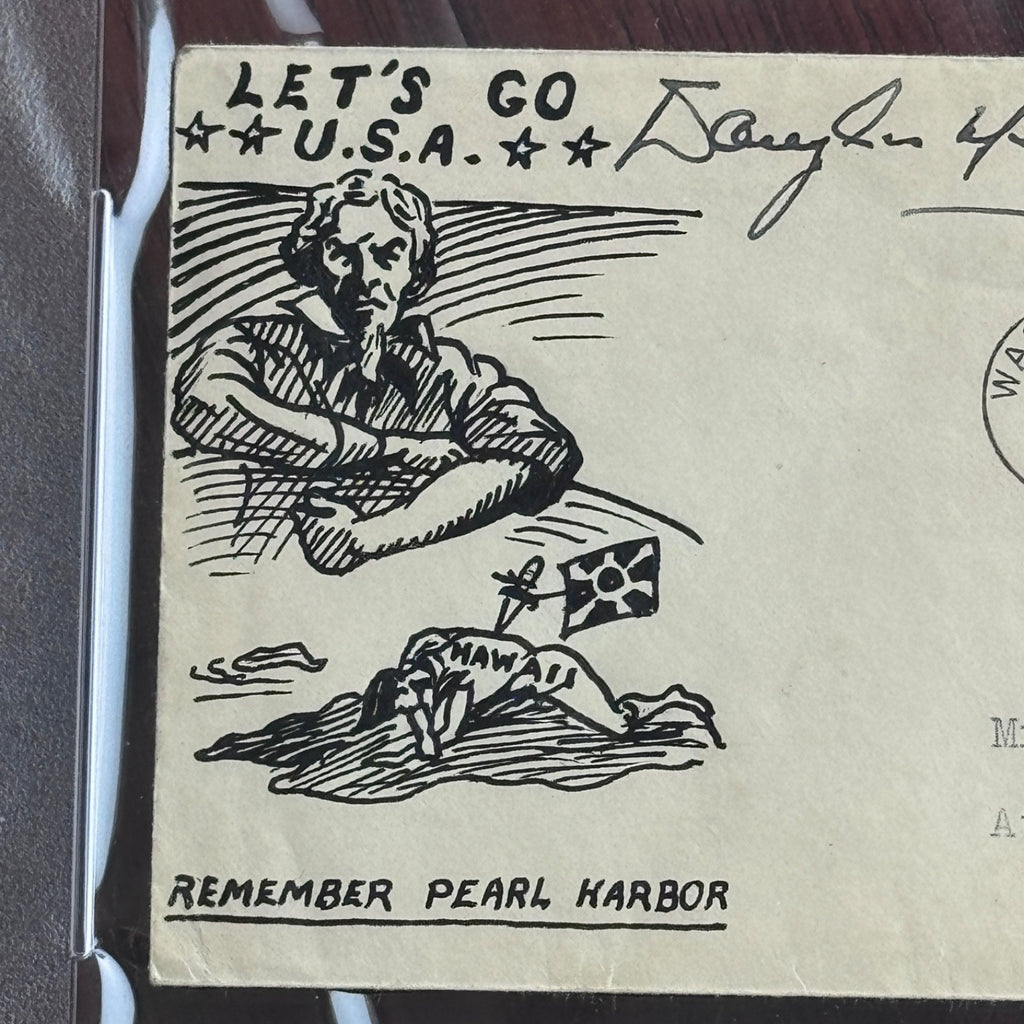 LET'S GO
U.S.A.
Douglas
WA
HAWAII
REMEMBER PEARL HARBOR